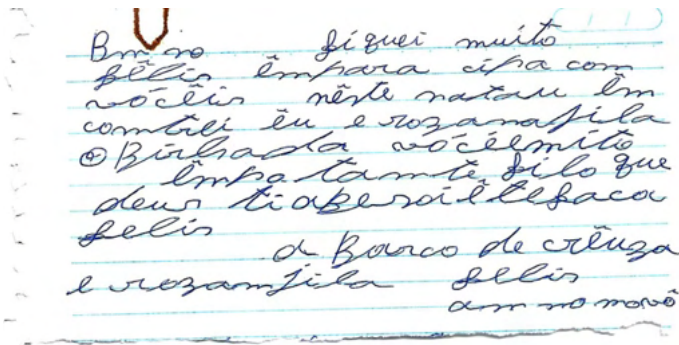 Bruno fiquei muito
fêlis êmpara cipa com
vócêis nêste natau êm
comtili êu e rozanafila
O Birhada vócêemito
êmpatamte filo que
deus tiabensoi ê tefaca
felis
a Barco de crêuza
e rozamfila felis
am no novô